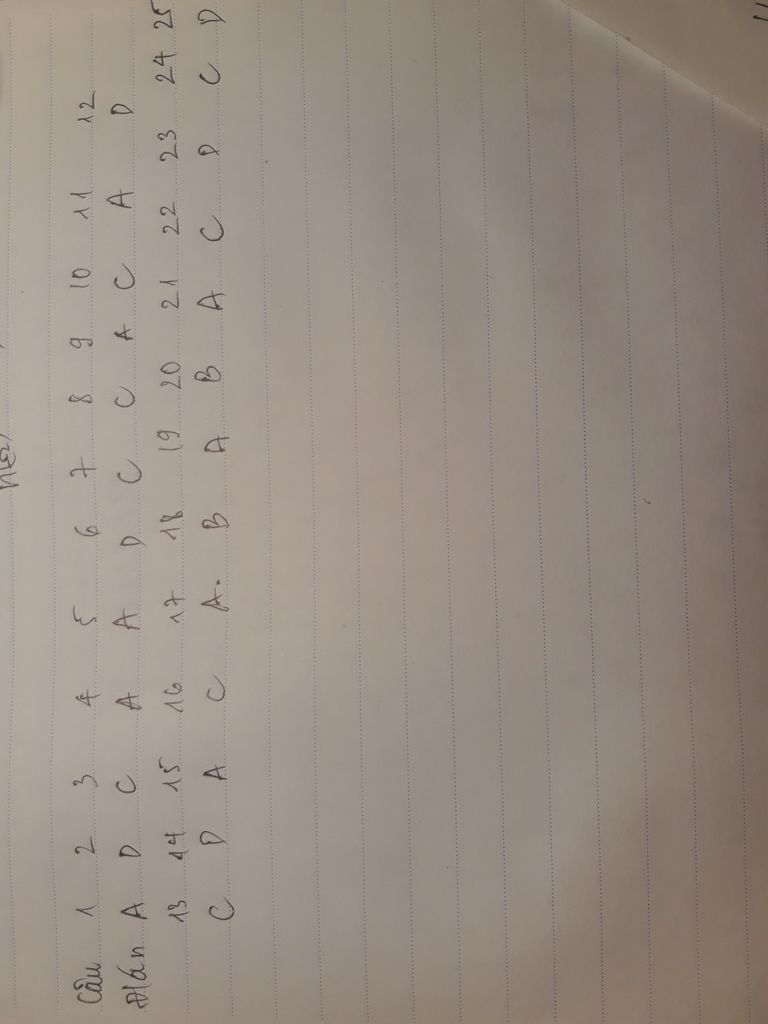 Câu 1 2 3 4 5 6 7 8 9 10 11 12
Đ/án A D C A A D C C A C A D
13 14 15 16 17 18 19 20 21 22 23 24 25
C D A C A. B A B A C D C D